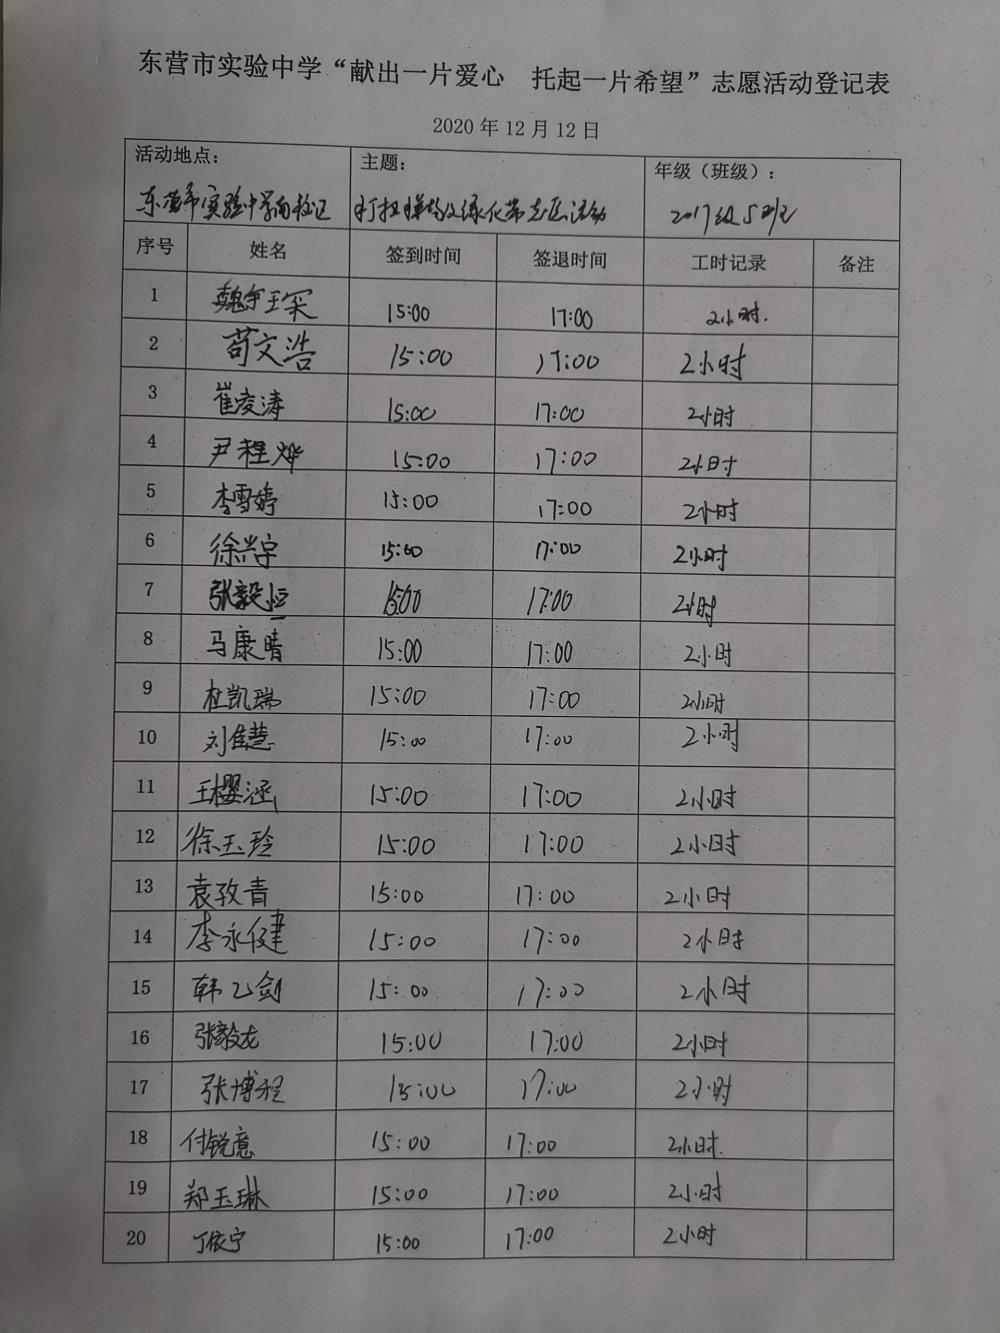 东营市实验中学“献出一片爱心 托起一片希望”志愿活动登记表
2020 年 12 月 12 日
活动地点： 主题： 年级（班级）：
东营市实验中学南校区 打扫操场及绿化带志愿活动 2017级5班
序号 姓名 签到时间 签退时间 工时记录 备注
1 魏宇 15:00 17:00 2小时.
2 苟文浩 15:00 17:00 2小时
3 崔凌涛 15:00 17:00 2小时
4 尹程烨 15:00 17:00 2小时
5 李雪婷 15:00 17:00 2小时
6 徐兴宇 15:00 17:00 2小时
7 张毅恒 15:00 17:00 2小时
8 马康晴 15:00 17:00 2小时
9 杜凯瑞 15:00 17:00 2小时
10 刘佳慧 15:00 17:00 2小时
11 王樱涵 15:00 17:00 2小时
12 徐玉玲 15:00 17:00 2小时
13 袁孜青 15:00 17:00 2小时
14 李永健 15:00 17:00 2小时
15 韩乙剑 15:00 17:00 2小时
16 张毅龙 15:00 17:00 2小时
17 张博程 15:00 17:00 2小时
18 付锐意 15:00 17:00 2小时.
19 郑玉琳 15:00 17:00 2小时
20 丁依宁 15:00 17:00 2小时